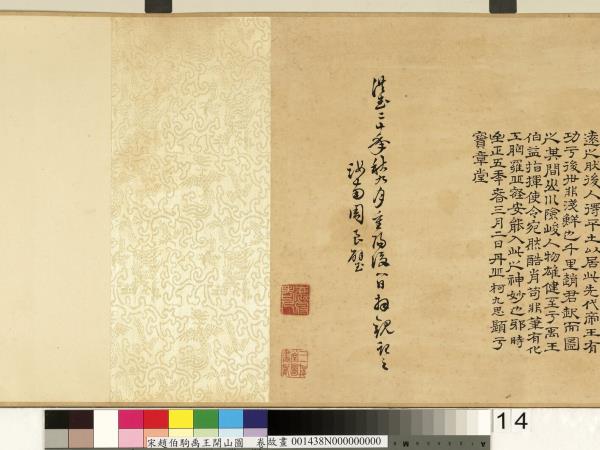 遠之狀後人得平土以居此先代帝王有
功于後世非淺鮮也千里趙君而圖
之其間山川險峻人物雄健至于禹王
伯益指揮使令宛然酷肖苟非筆有化
工胸羅丘壑安能入此之神妙也耶時
至正五季春三月二日丹丘柯九思題于
寶章堂
洪武二十年秋九月重陽後一日拜觀記之
周良璧
14
宋趙伯駒禹王開山圖 卷 故畫 001438N000000000